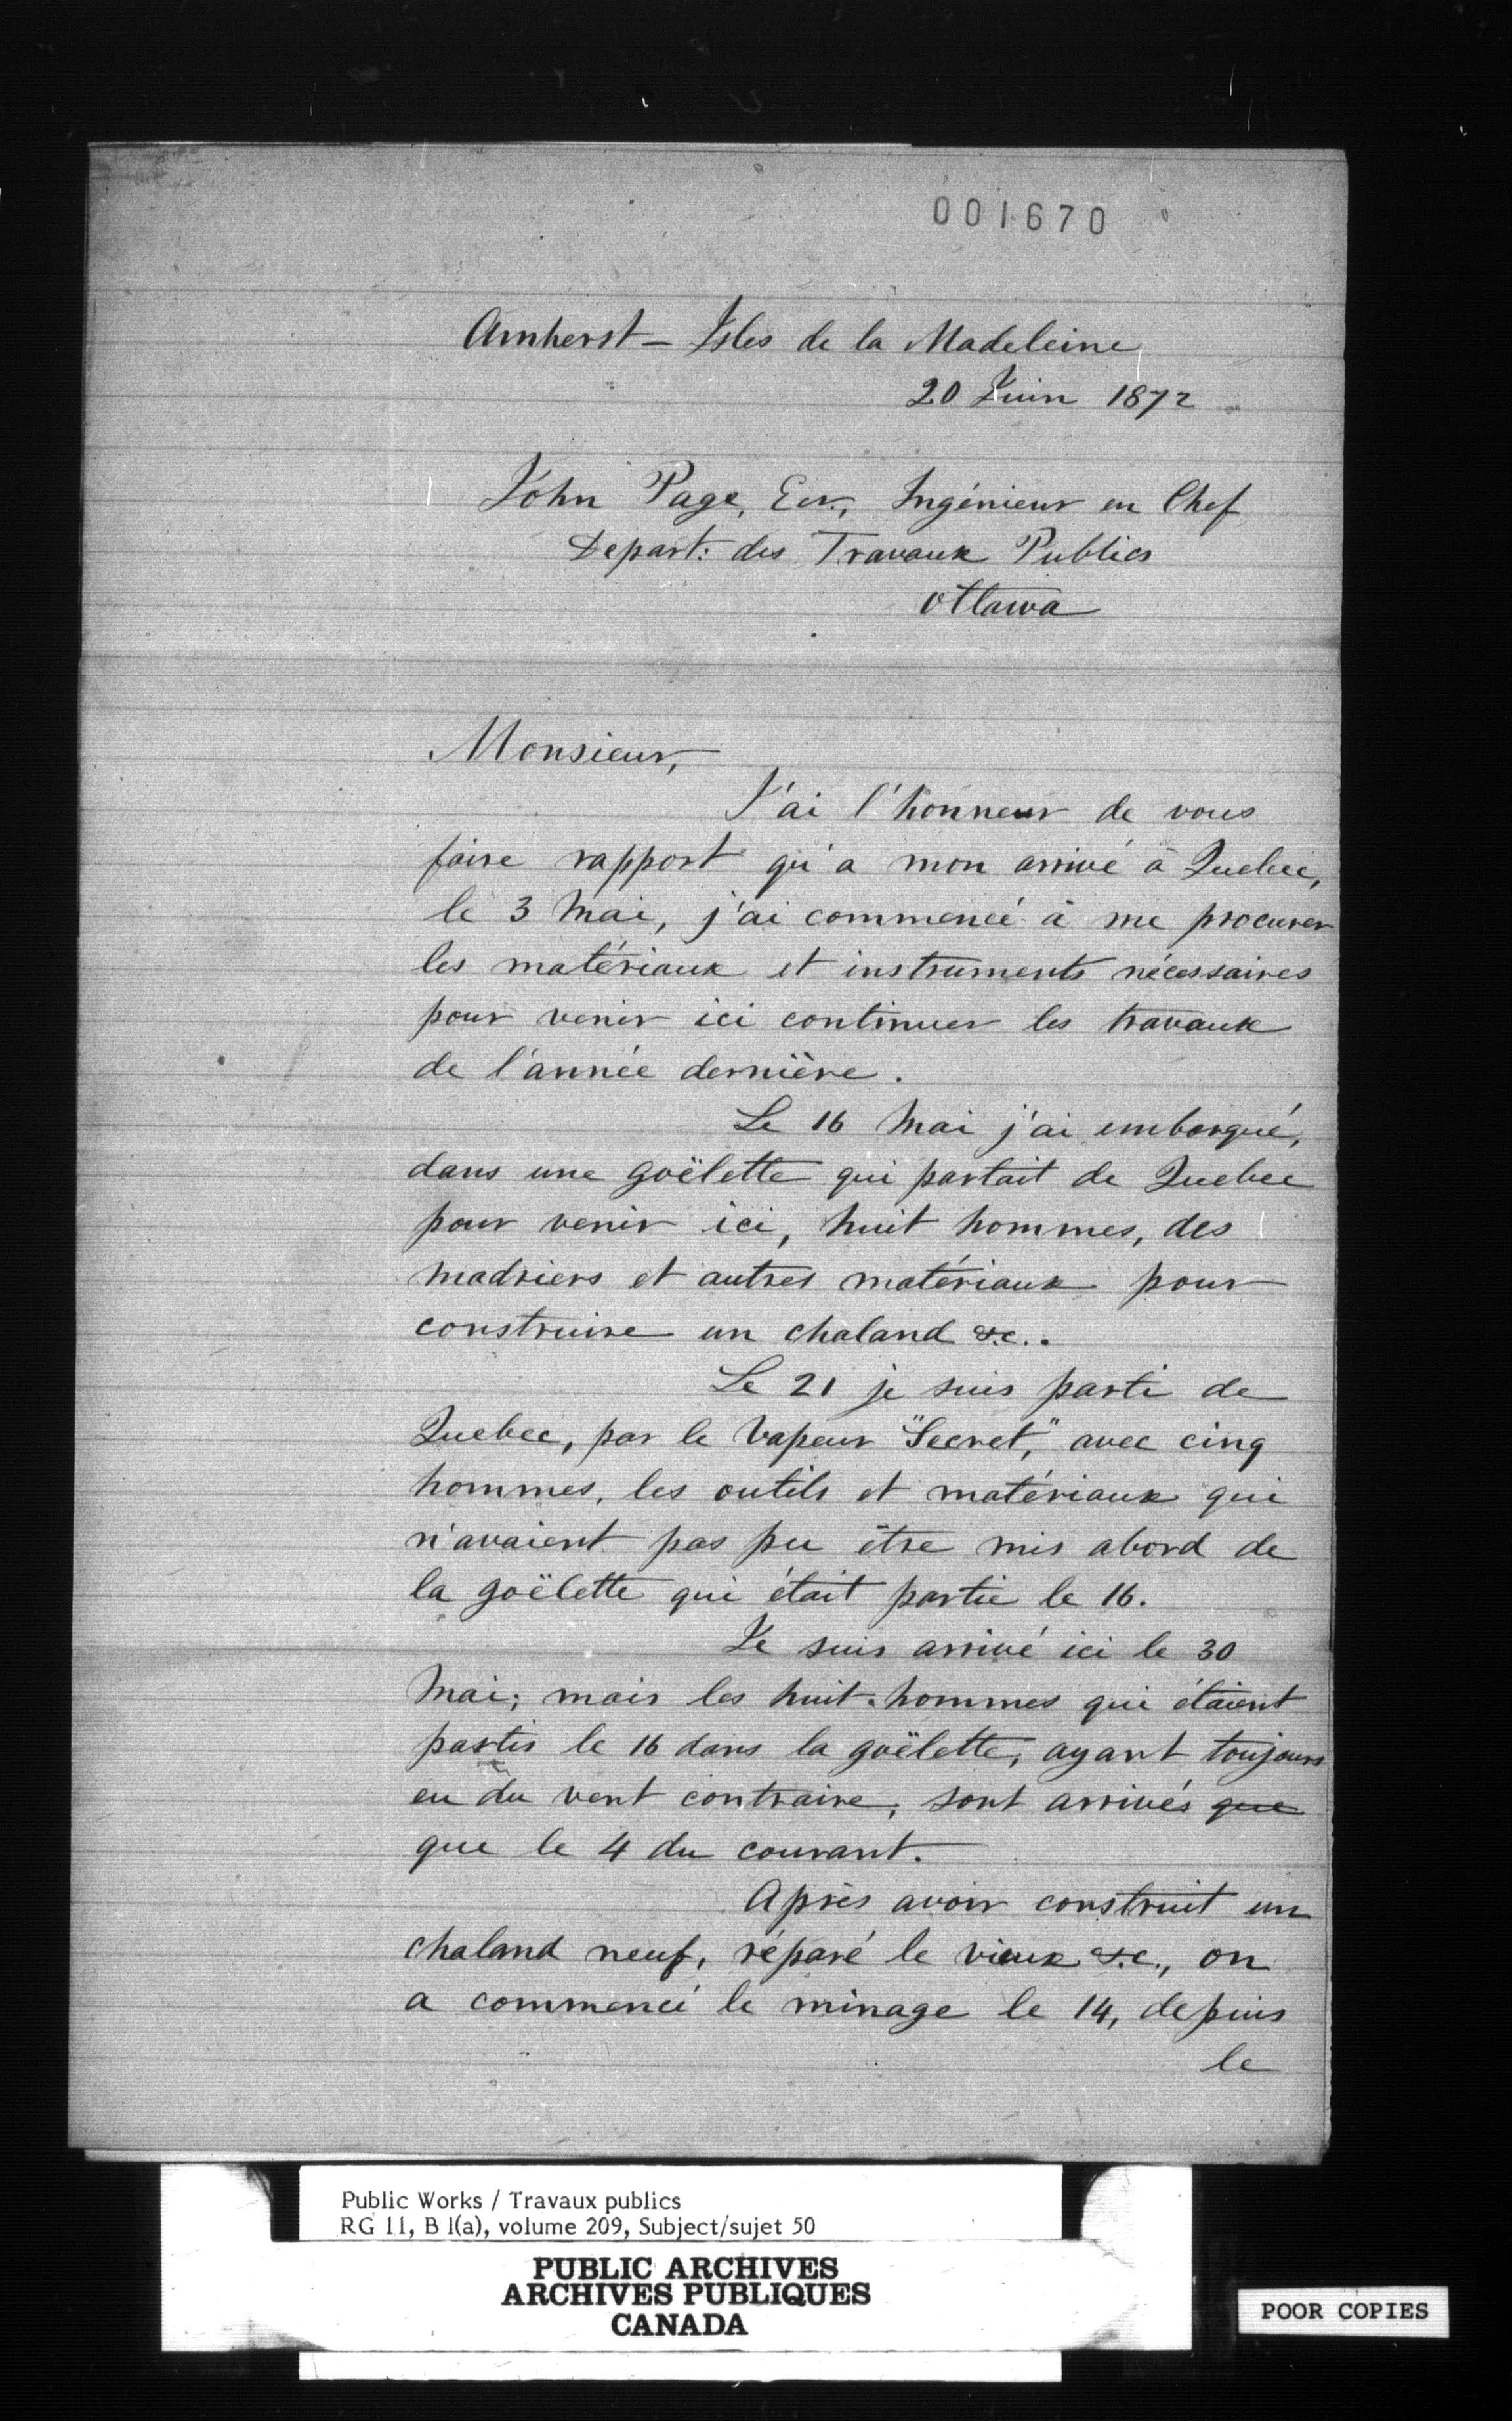 001670
Amherst - Isles de la Madeleine
20 Juin 1872
John Page, Ecr., Ingénieur en Chef
Depart: des Travaux Publics
Ottawa
Monsieur,
J'ai l'honneur de vous
faire rapport qu'a mon arrivé à Quebec,
le 3 Mai, j'ai commencé à me procurer
les matériaux et instruments nécessaires
pour venir ici continuer les travaux
de l'année dernière.
Le 16 Mai j'ai embarqué,
dans une goëlette qui partait de Quebec
pour venir ici, huit hommes, des
madriers et autres matériaux pour
construire un chaland &c..
Le 21 je suis parti de
Quebec, par le Vapeur "Secret," avec cinq
hommes, les outils et matériaux qui
n'avaient pas pu être mis abord de
la goëlette qui était partie le 16.
Je suis arrivé ici le 30
Mai; mais les huit hommes qui étaient
partis le 16 dans la goëlette, ayant toujours
eu du vent contraire, sont arrivés que
que le 4 du courant.
Après avoir construit un
chaland neuf, réparé le vieux &c., on
a commencé le minage le 14, depuis
le
Public Works / Travaux publics
RG 11, B 1(a), volume 209, Subject/sujet 50
PUBLIC ARCHIVES
ARCHIVES PUBLIQUES
CANADA
POOR COPIES